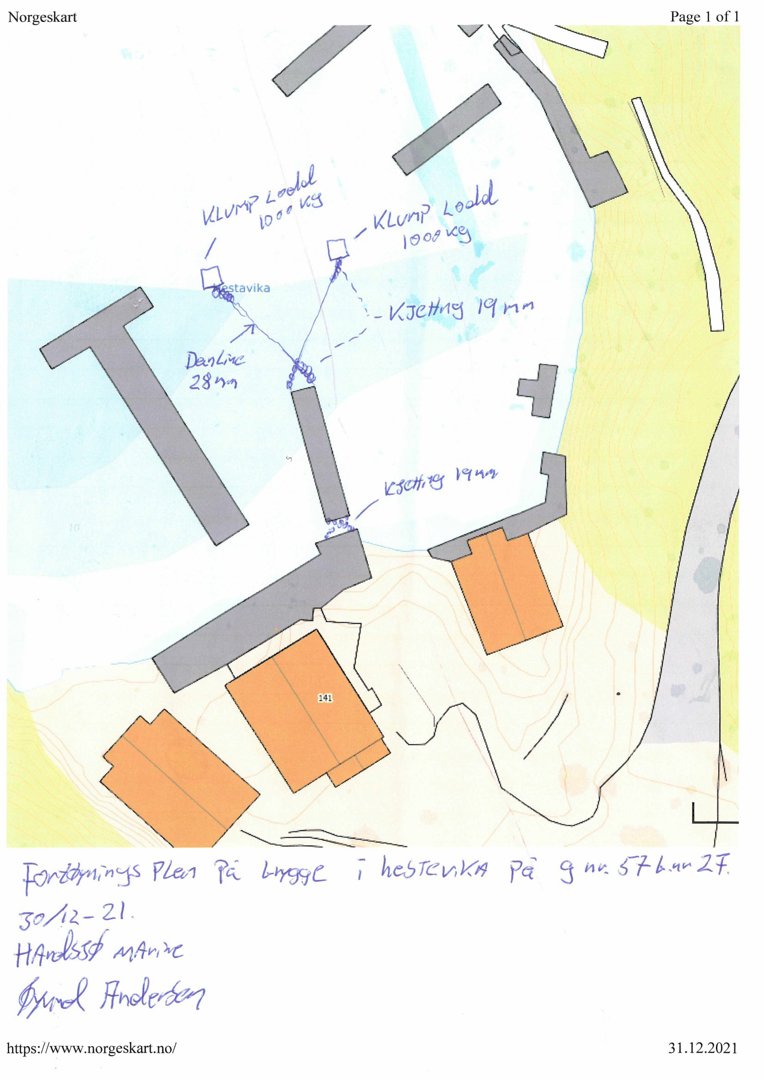 Norgeskart
Page 1 of 1
KLUMP Lodd
1000 kg
KLUMP Lodd
1000 kg
Hestavika
KJetting 19 mm
DanLine
28 mm
KJetting 19 mm
141
Fortøynings Plan På brygge i hestevika på g nr. 57 b.nr 27.
30/12-21.
HAndssø mArine
Øyvind Andersen
https://www.norgeskart.no/
31.12.2021